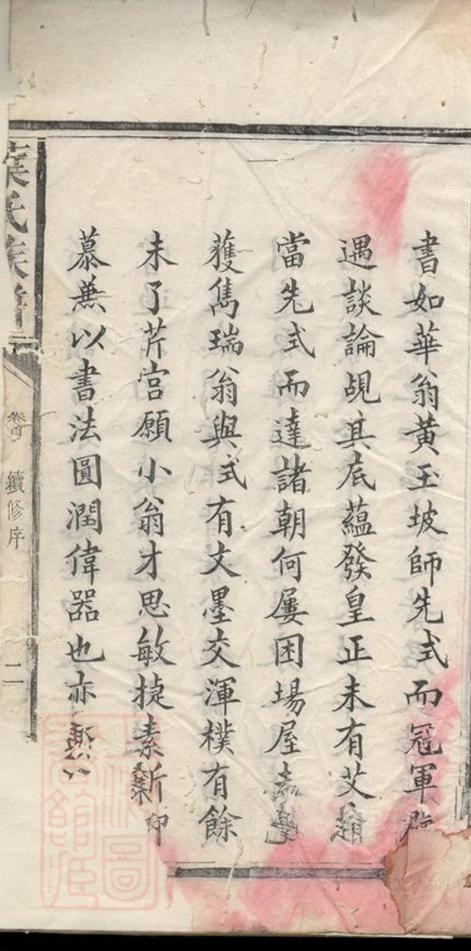 書如華翁黃玉坡師先式而冠軍
遇談論覘其底蘊發皇正未有艾
當先式而達諸朝何屢困場屋
獲雋瑞翁與式有文墨交渾樸有餘
未了芹宮願小翁才思敏捷素所仰
慕兼以書法圓潤偉器也亦
葉氏族譜
卷首
續修序
二